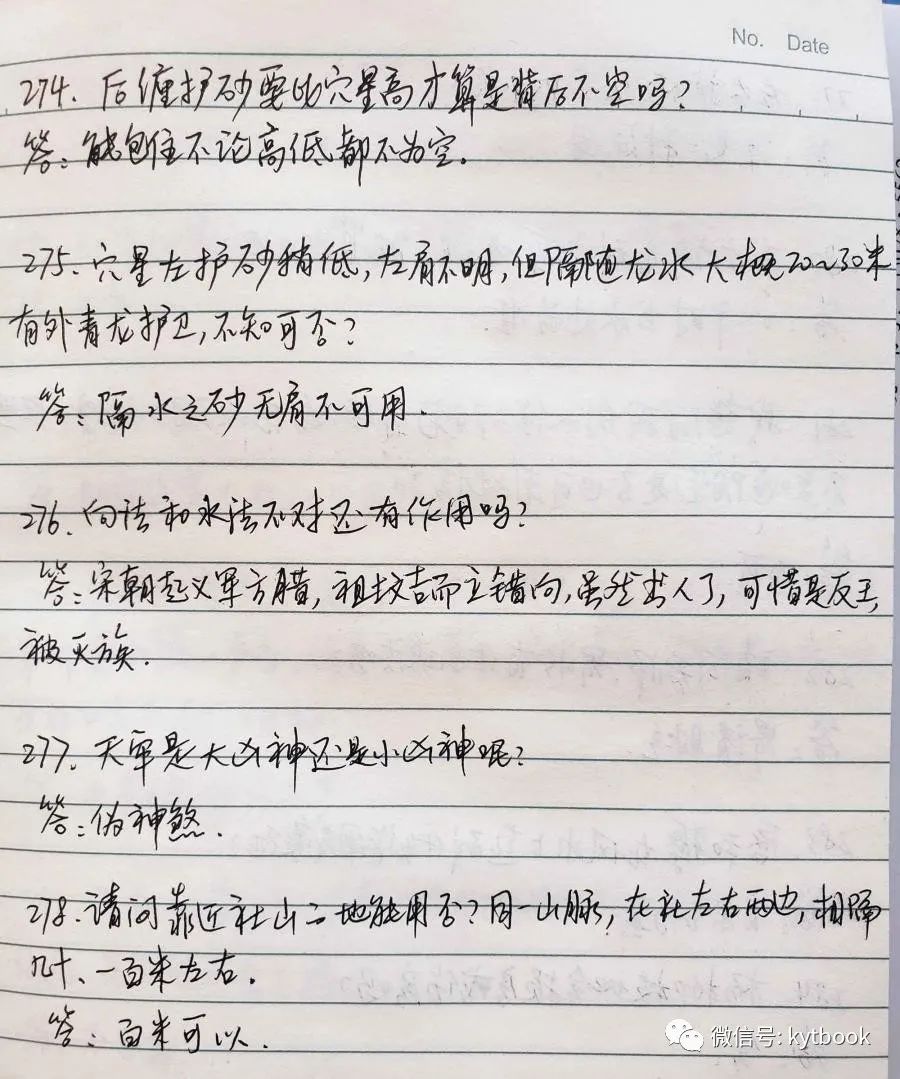 No. Date
274. 后缠护砂要比穴星高才算是背后不空吗?
答:能包住不论高低都不为空.
275. 穴星左护砂稍低,左肩不明,但隔随龙水大概20~30米
有外青龙护卫,不知可否?
答:隔水之砂无肩不可用.
276. 向法和水法不对还有作用吗?
答:宋朝起义军方腊,祖坟吉而立错向,虽然出人了,可惜是反王,
被灭族.
277. 天军是大凶神还是小凶神呢?
答:伪神煞.
278. 请问靠近社山二地能用否?同一山脉,在社左右两边,相隔
九十、一百米左右.
答:百米可以.
微信号: kytbook